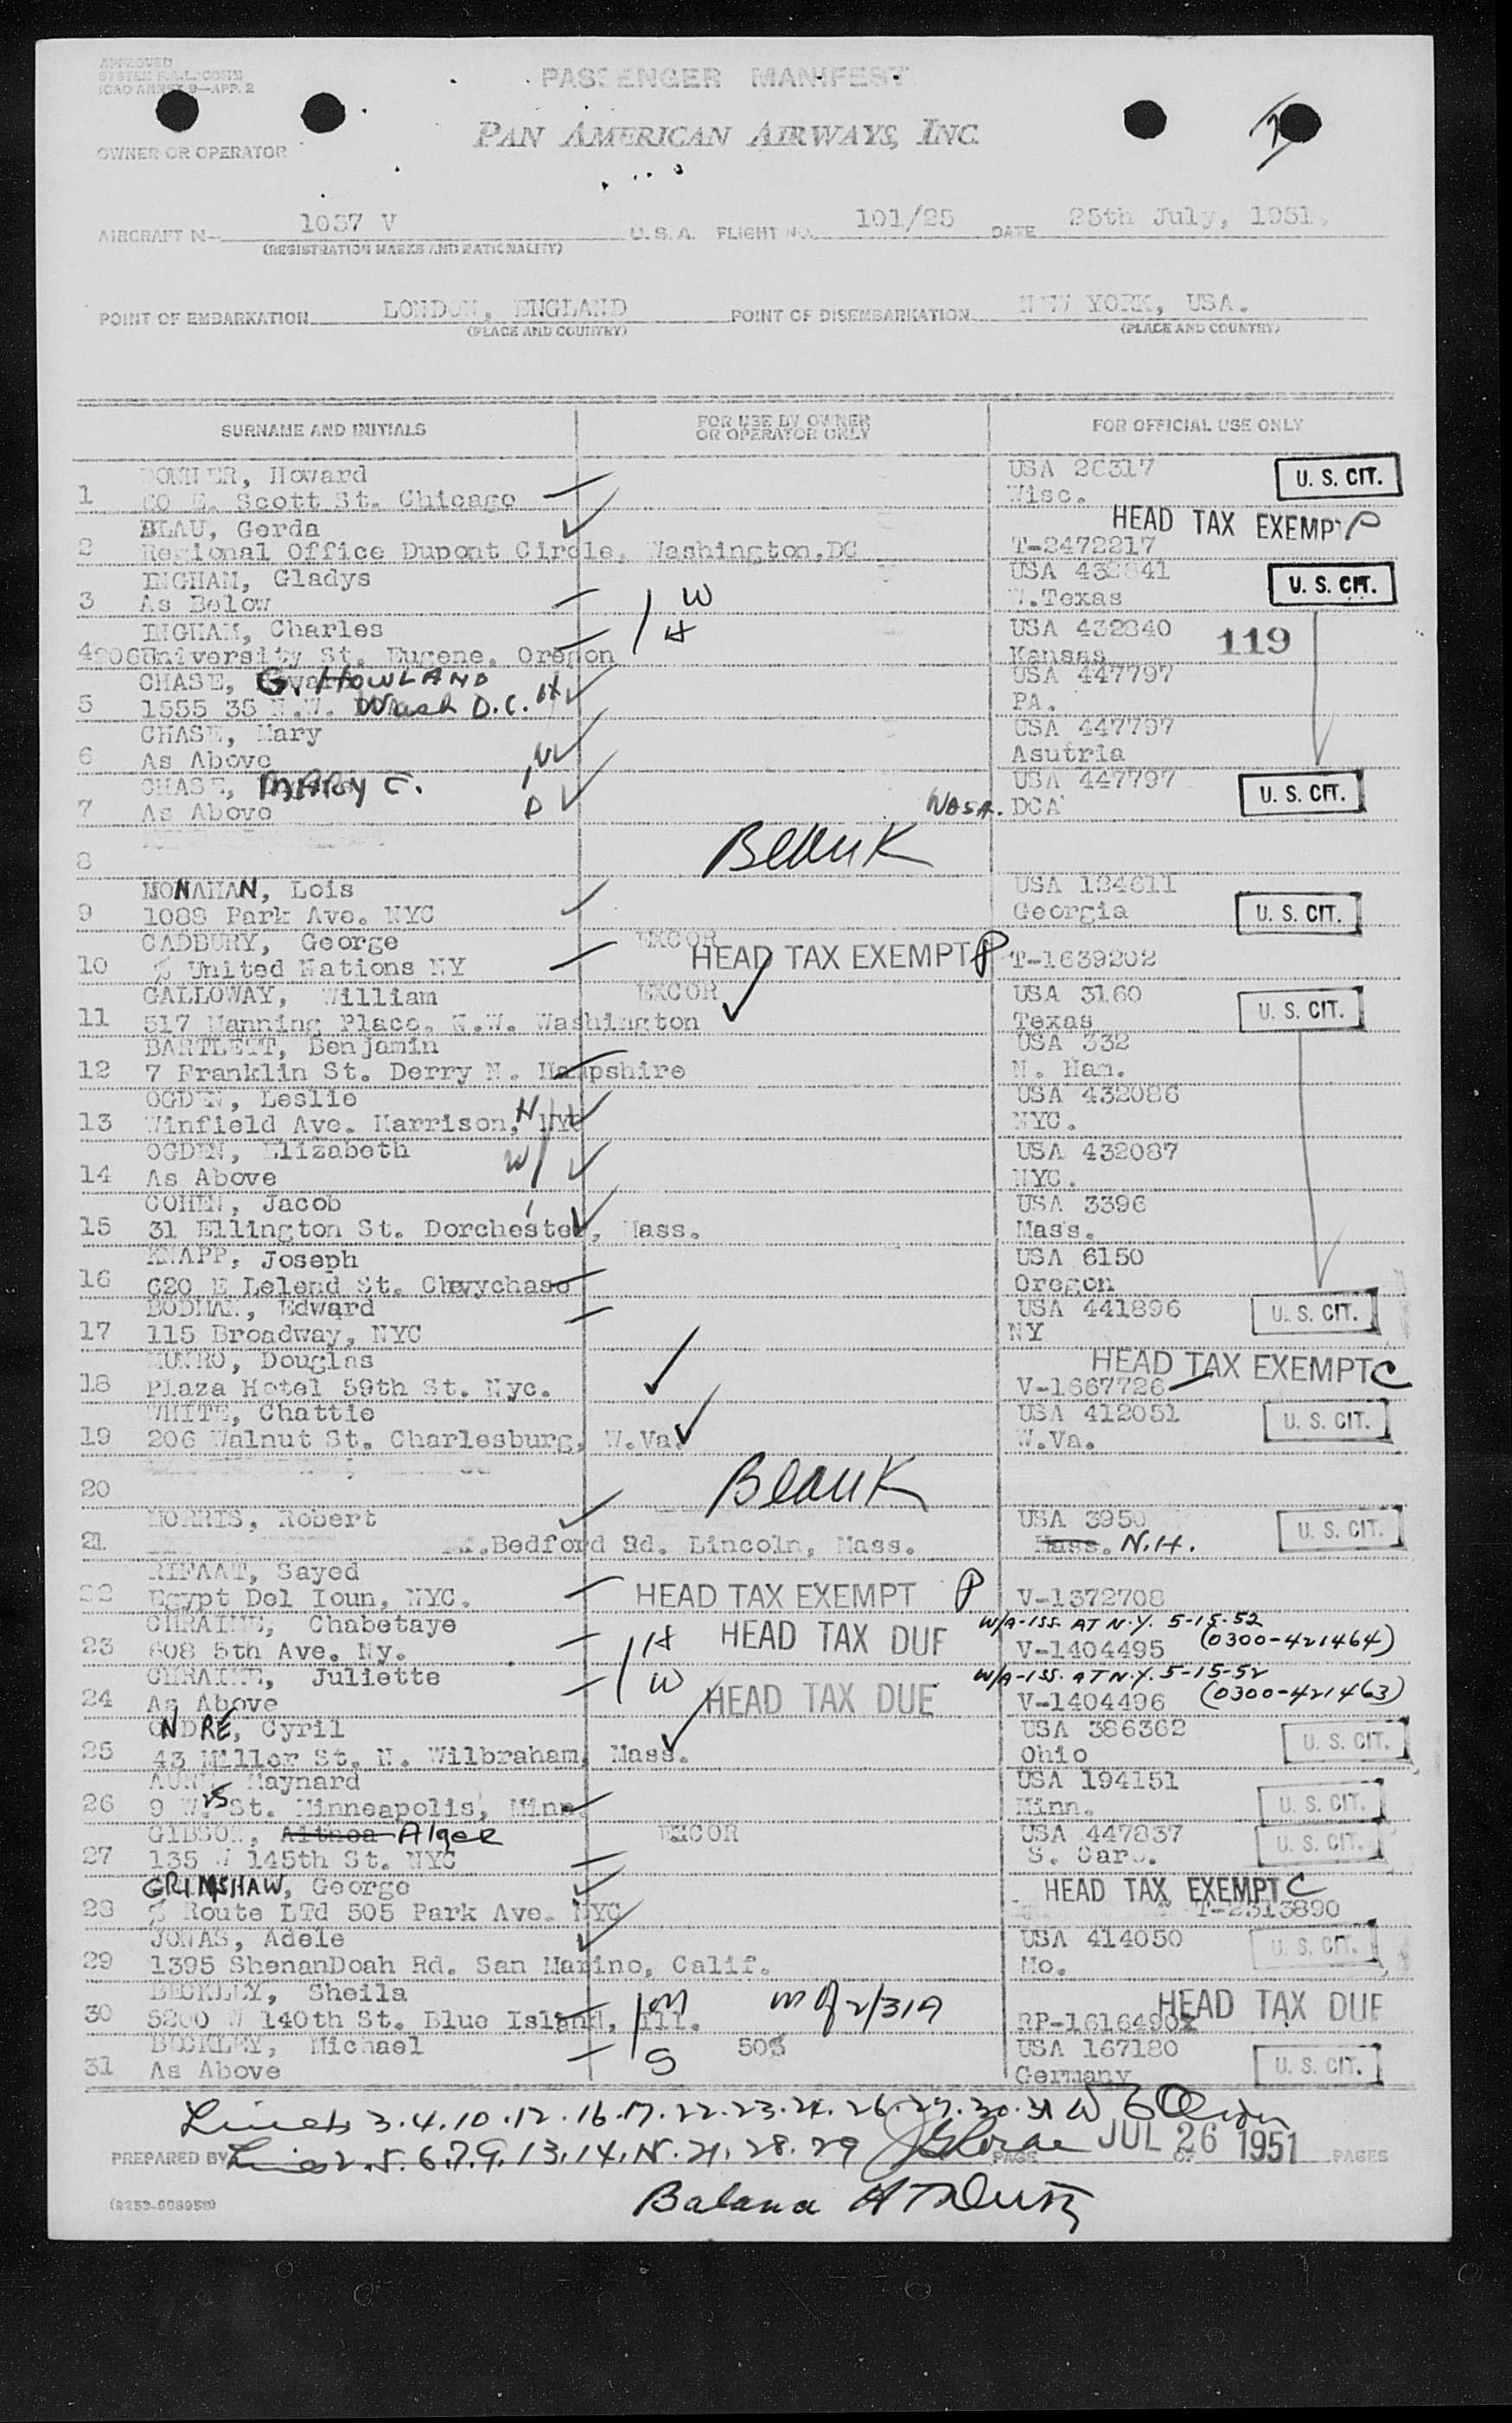 APPROVED
ICAO ANNEX 9—APP. 2
PASSENGER MANIFEST
PAN AMERICAN AIRWAYS, INC.
OWNER OR OPERATOR
AIRCRAFT N— 1037 V U. S. A. FLIGHT NO. 101/25 DATE 25th July, 1951.
(REGISTRATION MARKS AND NATIONALITY)
POINT OF EMBARKATION LONDON, ENGLAND POINT OF DISEMBARKATION NEW YORK, USA.
(PLACE AND COUNTRY) (PLACE AND COUNTRY)
SURNAME AND INITIALS FOR USE BY OWNER OR OPERATOR ONLY FOR OFFICIAL USE ONLY
Howard USA 26317 U. S. CIT.
1 E. Scott St. Chicago Wisc.
BLAU, Gerda HEAD TAX EXEMPT P
2 Regional Office Dupont Circle, Washington,DC T-2472217
INGHAM, Gladys USA 432841 U. S. CIT.
3 As Below W W.Texas
INGHAM, Charles H USA 432840 119
4 206University St. Eugene. Oregon Kansas
CHASE, G. HOWLAND USA 447797
5 1555 35 N.W. Wash D.C. H PA.
CHASE, Mary USA 447797
6 As Above W Asutria
CHASE, MARY C. USA 447797 U. S. CIT.
7 As Above D WASH. DCA
8 Blank
MONAHAN, Lois USA 124611
9 1088 Park Ave. NYC Georgia U. S. CIT.
CADBURY, George EXCOR
10 % United Nations NY HEAD TAX EXEMPT P T-1639202
GALLOWAY, William EXCOR USA 3160 U. S. CIT.
11 517 Manning Place. N.W. Washington Texas
BARTLETT, Benjamin USA 332
12 7 Franklin St. Derry N. Hampshire N. Ham.
OGDEN, Leslie H USA 432086
13 Winfield Ave. Harrison, NYC NYC.
OGDEN, Elizabeth W USA 432087
14 As Above NYC.
COHEN, Jacob USA 3396
15 31 Ellington St. Dorchester, Mass. Mass.
KNAPP, Joseph USA 6150
16 620 E Lelend St. Chevychase Oregon
BODMAN, Edward USA 441896 U. S. CIT.
17 115 Broadway, NYC NY
MUNRO, Douglas HEAD TAX EXEMPT C
18 Plaza Hotel 59th St. Nyc. V-1667726
WHITE, Chattie USA 412051 U. S. CIT.
19 206 Walnut St. Charlesburg, W.Va. W.Va.
20 Blank
MORRIS, Robert USA 3950 U. S. CIT.
21 Bedford Rd. Lincoln, Mass. Mass. N.H.
RIFAAT, Sayed
22 Egypt Del Ioun, NYC. HEAD TAX EXEMPT P V-1372708
CHRAIME, Chabetaye H HEAD TAX DUE W/A-ISS. AT N.Y. 5-15-52
23 608 5th Ave. Ny. V-1404495 (0300-421464)
CHRAIME, Juliette W W/A-ISS. AT N.Y. 5-15-52
24 As Above HEAD TAX DUE V-1404496 (0300-421463)
ONDRE, Cyril USA 386362 U. S. CIT.
25 43 Miller St. N. Wilbraham, Mass. Ohio
Maynard USA 194151
26 9 W. 25 St. Minneapolis, Minn. Minn. U. S. CIT.
GIBSON, Althea Alger EXCOR USA 447837 U. S. CIT.
27 135 W 145th St. NYC S. Car.
GRIMSHAW, George HEAD TAX EXEMPT C
28 % Route LTd 505 Park Ave. NYC T-2313890
JONAS, Adele USA 414050 U. S. CIT.
29 1395 ShenanDoah Rd. San Marino, Calif. Mo.
BECKLEY, Sheila M HEAD TAX DUE
30 5200 W 140th St. Blue Island, Ill. RP-1616490
BECKLEY, Michael S 503 USA 167180
31 As Above Germany U. S. CIT.
Lines 3.4.10.12.16.17.22.23.24.26.27.30.31
PREPARED BY Lines 2.5.6.7.9.13.14.15.21.28.29 PAGE JUL 26 1951 OF PAGES
Balance